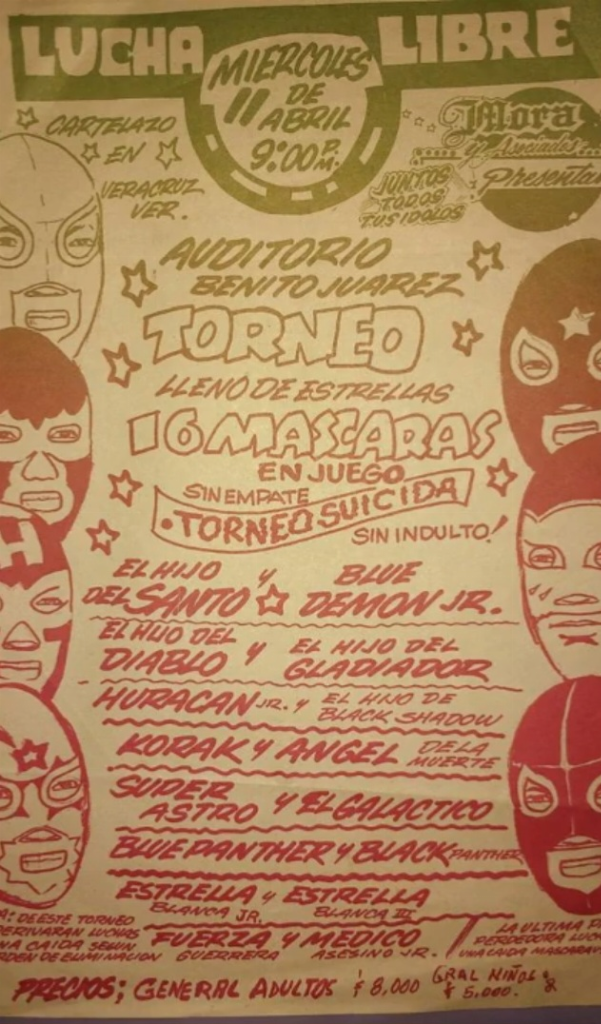 LUCHA LIBRE
MIERCOLES
11 DE
ABRIL
9:00 P.M.
CARTELAZO
EN
VERACRUZ
VER.
Mora
y Asociados
Presentan
JUNTOS
TODOS
TUS IDOLOS
AUDITORIO
BENITO JUAREZ
TORNEO
LLENO DE ESTRELLAS
16 MASCARAS
EN JUEGO
SIN EMPATE
TORNEO SUICIDA
SIN INDULTO!
EL HIJO DEL SANTO Y BLUE DEMON JR.
EL HIJO DEL DIABLO Y EL HIJO DEL GLADIADOR
HURACAN JR. Y EL HIJO DE BLACK SHADOW
KORAK Y ANGEL DE LA MUERTE
SUPER ASTRO Y EL GALACTICO
BLUE PANTHER Y BLACK PANTHER
ESTRELLA BLANCA JR. Y ESTRELLA BLANCA III
FUERZA GUERRERA Y MEDICO ASESINO JR.
A: DE ESTE TORNEO
ERIVARAN LUCHAS
NA CAIDA SEGUN
RDEN DE ELIMINACION
LA ULTIMA P
PERDEDORA LUCH
UNA CAIDA MASCARA V
H
PRECIOS; GENERAL ADULTOS $ 8,000 GRAL NIÑOS $ 5,000.